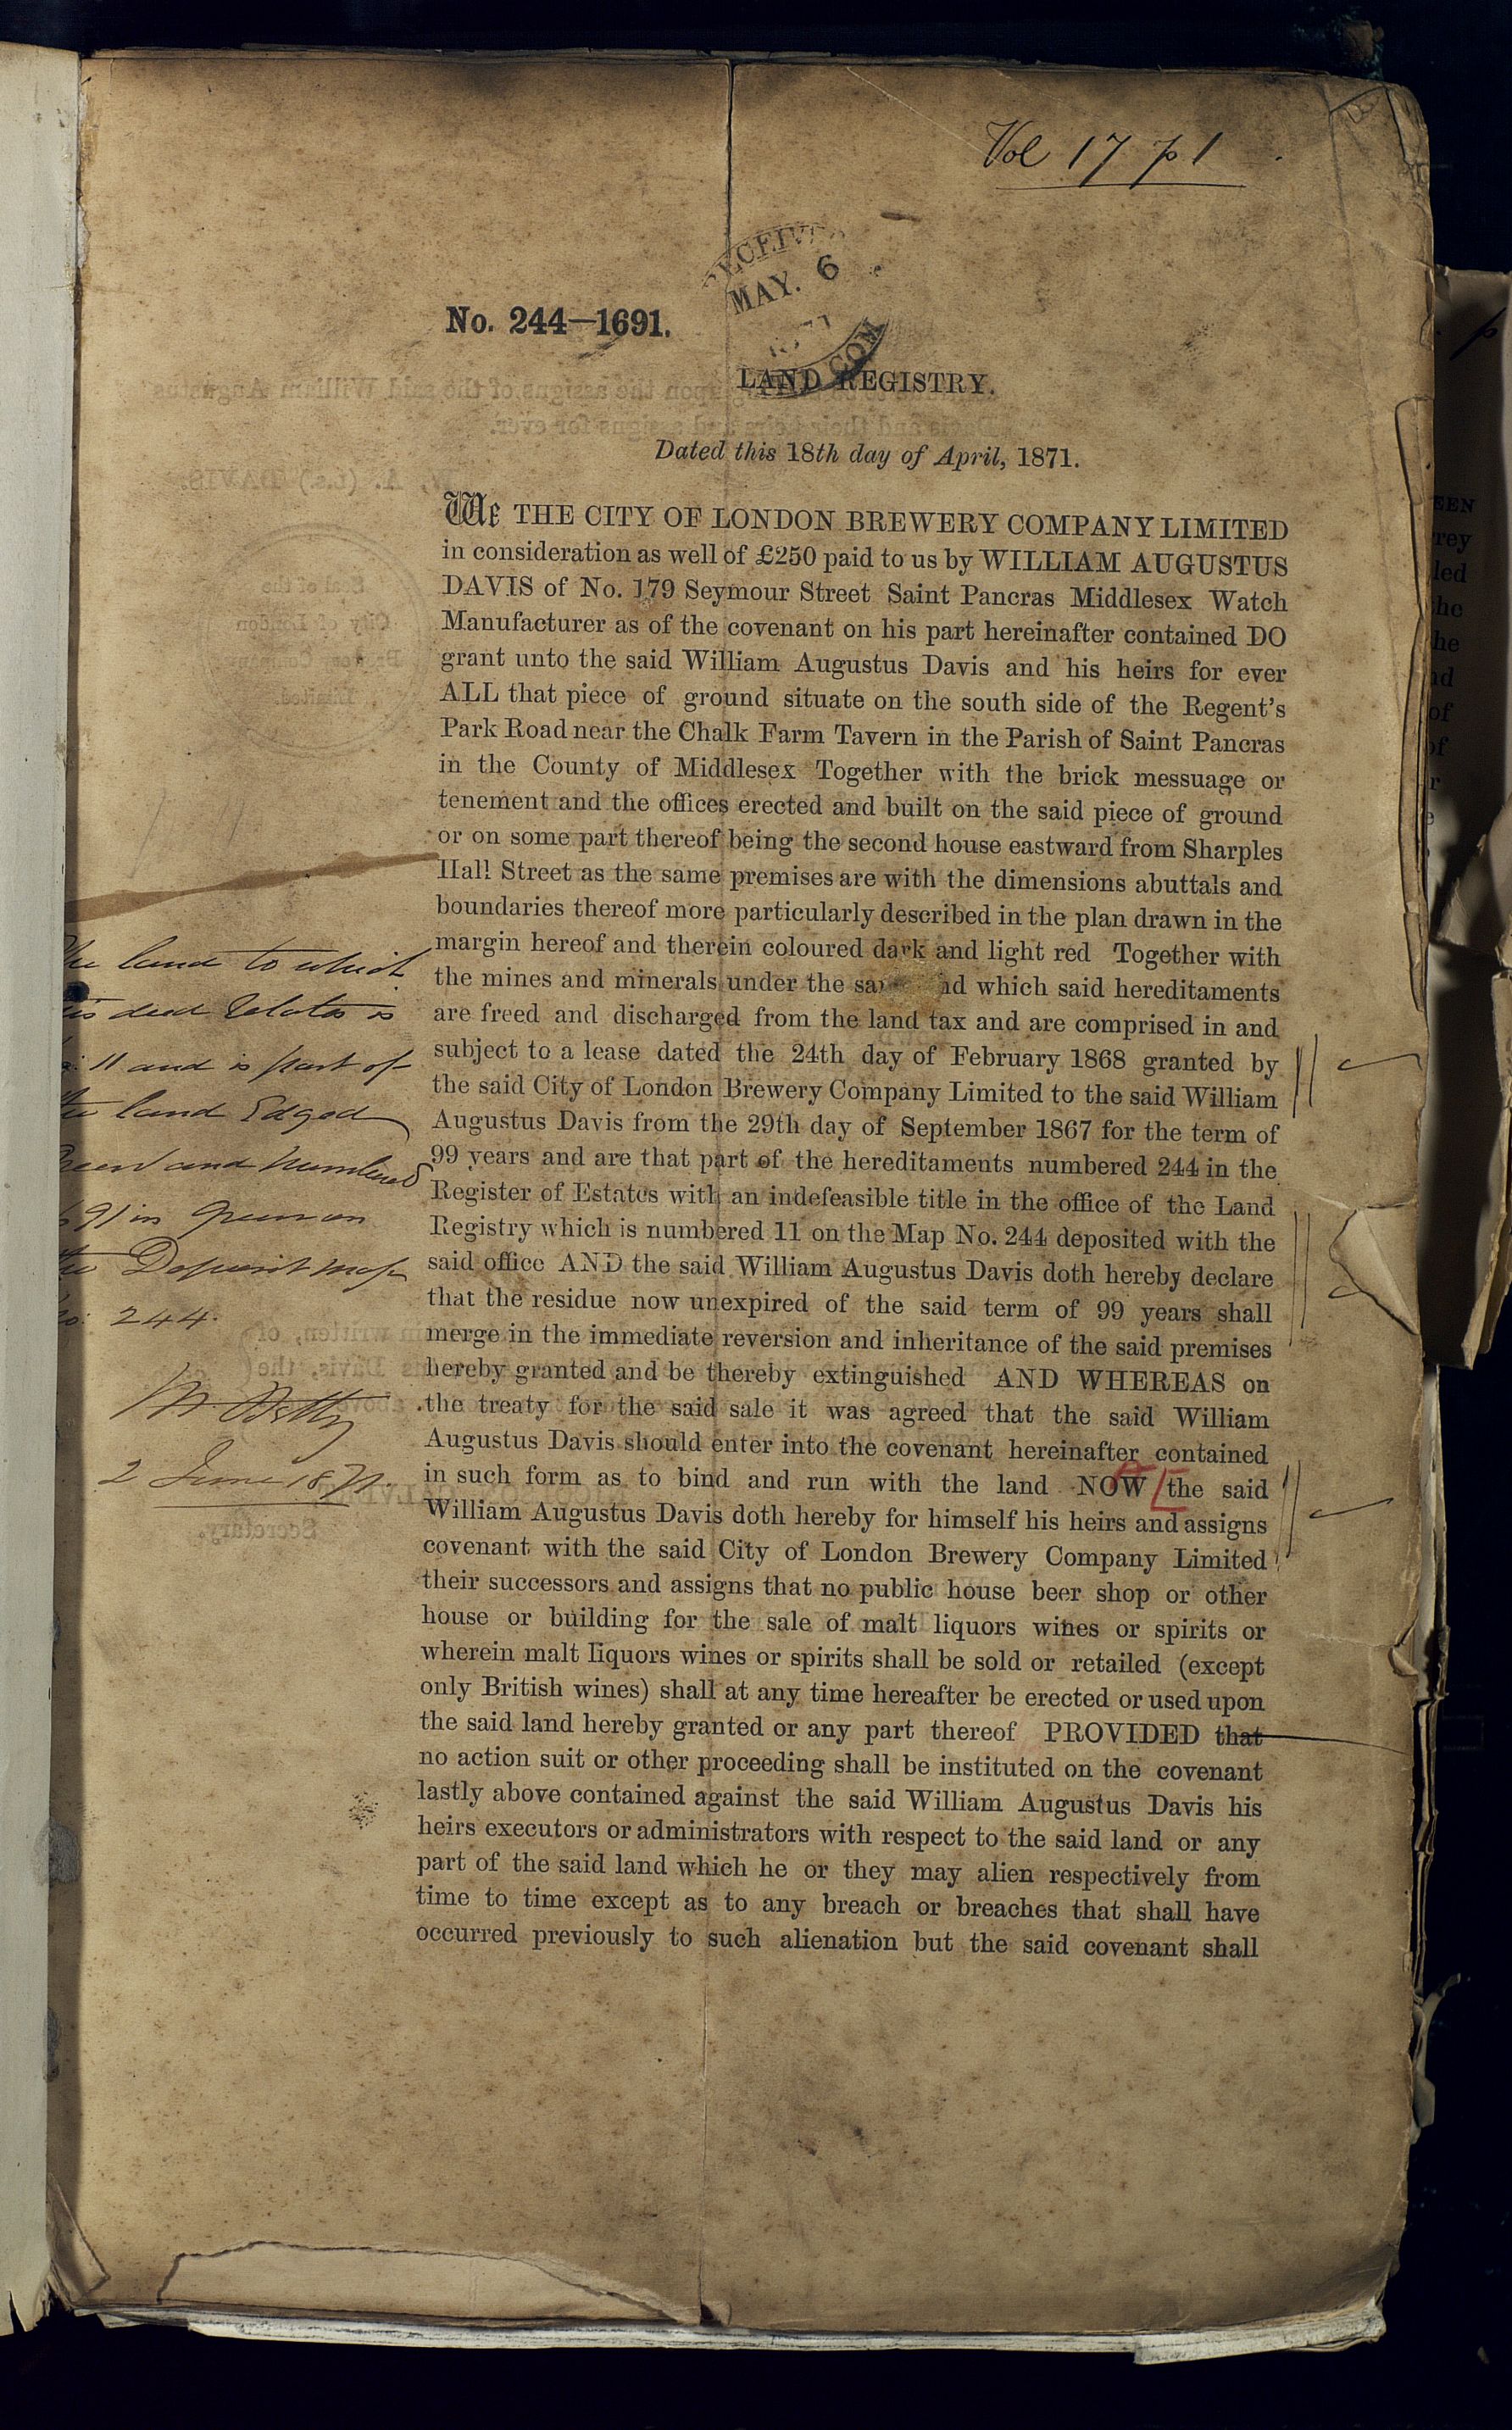 Vol 17 p 1
MAY. 6
No. 244—1691.
LAND REGISTRY.
Dated this 18th day of April, 1871.
We THE CITY OF LONDON BREWERY COMPANY LIMITED
in consideration as well of £250 paid to us by WILLIAM AUGUSTUS
DAVIS of No. 179 Seymour Street Saint Pancras Middlesex Watch
Manufacturer as of the covenant on his part hereinafter contained DO
grant unto the said William Augustus Davis and his heirs for ever
ALL that piece of ground situate on the south side of the Regent's
Park Road near the Chalk Farm Tavern in the Parish of Saint Pancras
in the County of Middlesex Together with the brick messuage or
tenement and the offices erected and built on the said piece of ground
or on some part thereof being the second house eastward from Sharples
Hall Street as the same premises are with the dimensions abuttals and
boundaries thereof more particularly described in the plan drawn in the
margin hereof and therein coloured dark and light red Together with
the mines and minerals under the which said hereditaments
are freed and discharged from the land tax and are comprised in and
subject to a lease dated the 24th day of February 1868 granted by
the said City of London Brewery Company Limited to the said William
Augustus Davis from the 29th day of September 1867 for the term of
99 years and are that part of the hereditaments numbered 244 in the
Register of Estates with an indefeasible title in the office of the Land
Registry which is numbered 11 on the Map No. 244 deposited with the
said office AND the said William Augustus Davis doth hereby declare
that the residue now unexpired of the said term of 99 years shall
merge in the immediate reversion and inheritance of the said premises
hereby granted and be thereby extinguished AND WHEREAS on
the treaty for the said sale it was agreed that the said William
Augustus Davis should enter into the covenant hereinafter contained
in such form as to bind and run with the land NOW [the said
William Augustus Davis doth hereby for himself his heirs and assigns
covenant with the said City of London Brewery Company Limited
their successors and assigns that no public house beer shop or other
house or building for the sale of malt liquors wines or spirits or
wherein malt liquors wines or spirits shall be sold or retailed (except
only British wines) shall at any time hereafter be erected or used upon
the said land hereby granted or any part thereof PROVIDED that
no action suit or other proceeding shall be instituted on the covenant
lastly above contained against the said William Augustus Davis his
heirs executors or administrators with respect to the said land or any
part of the said land which he or they may alien respectively from
time to time except as to any breach or breaches that shall have
occurred previously to such alienation but the said covenant shall
land to which
deed relates is
11 and is part of
the land Edged
and numbered
in green on
the Deposit map
244.
2 June 1871.